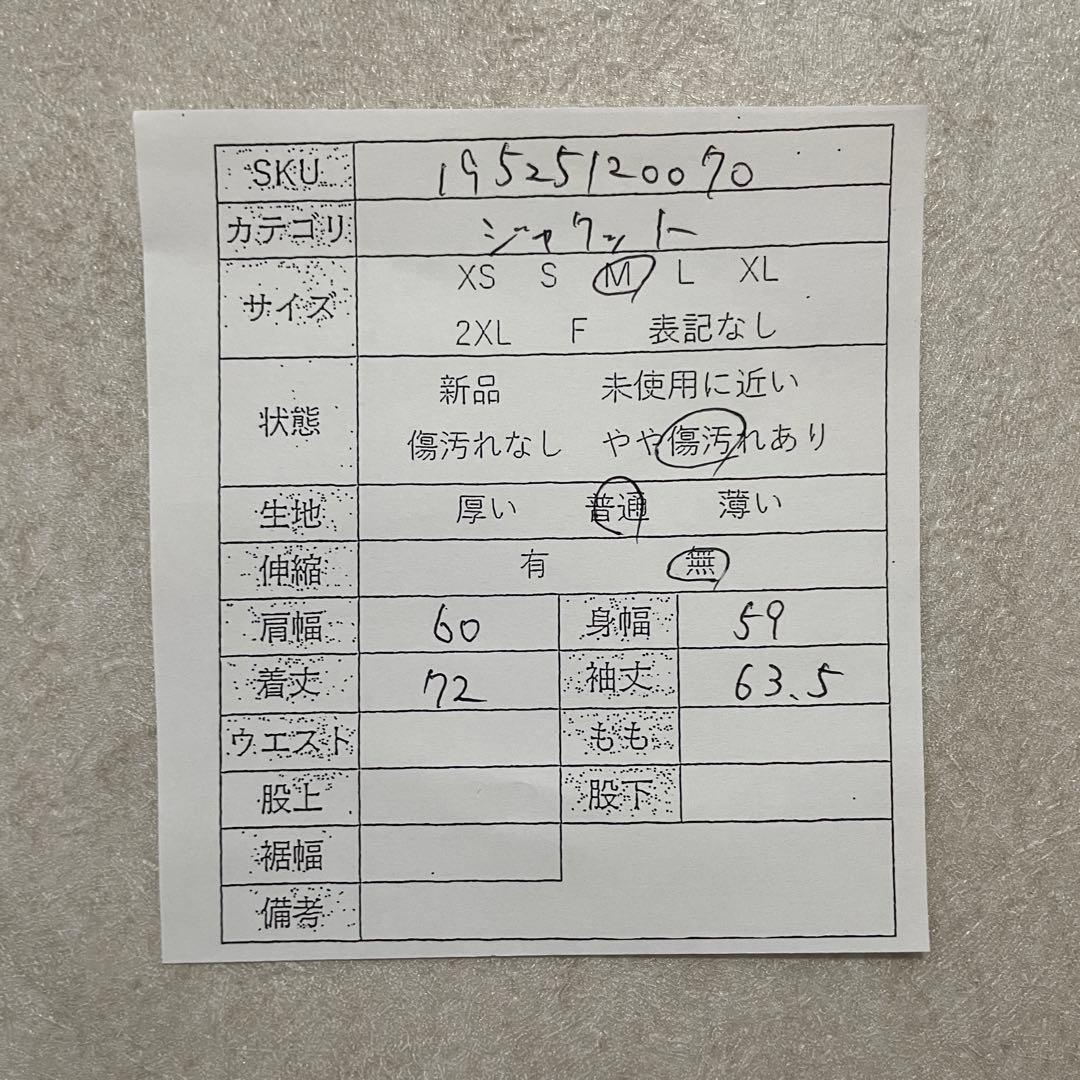 SKU 19525120070
カテゴリ ジャケット
サイズ XS S M L XL
2XL F 表記なし
状態 新品 未使用に近い
傷汚れなし やや傷汚れあり
生地 厚い 普通 薄い
伸縮 有 無
肩幅 60 身幅 59
着丈 72 袖丈 63.5
ウエスト もも
股上 股下
裾幅
備考